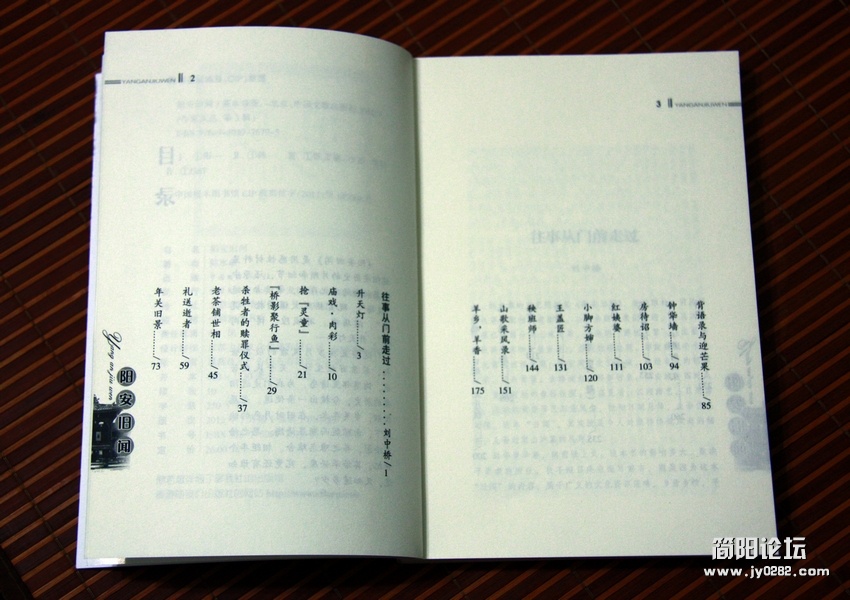 YANGANJIUWEN 2
目
录
往事从门前走过………刘中桥/1
升天灯……/3
庙戏·肉彩……/10
抢『灵童』……/21
『桥影聚行鱼』……/29
杀牲者的赎罪仪式……/37
老茶铺世相……/45
礼送逝者……/59
年关旧景……/73
阳安旧闻
3 YANGANJIUWEN
背语录与迎芒果……/85
钟华墙……/94
房待诏……/103
红姨婆……/111
小脚方婶……/120
王盖匠……/131
秧班师……/144
山歌采风录……/151
羊乡，羊香……/175
简阳论坛
www.jy0282.com